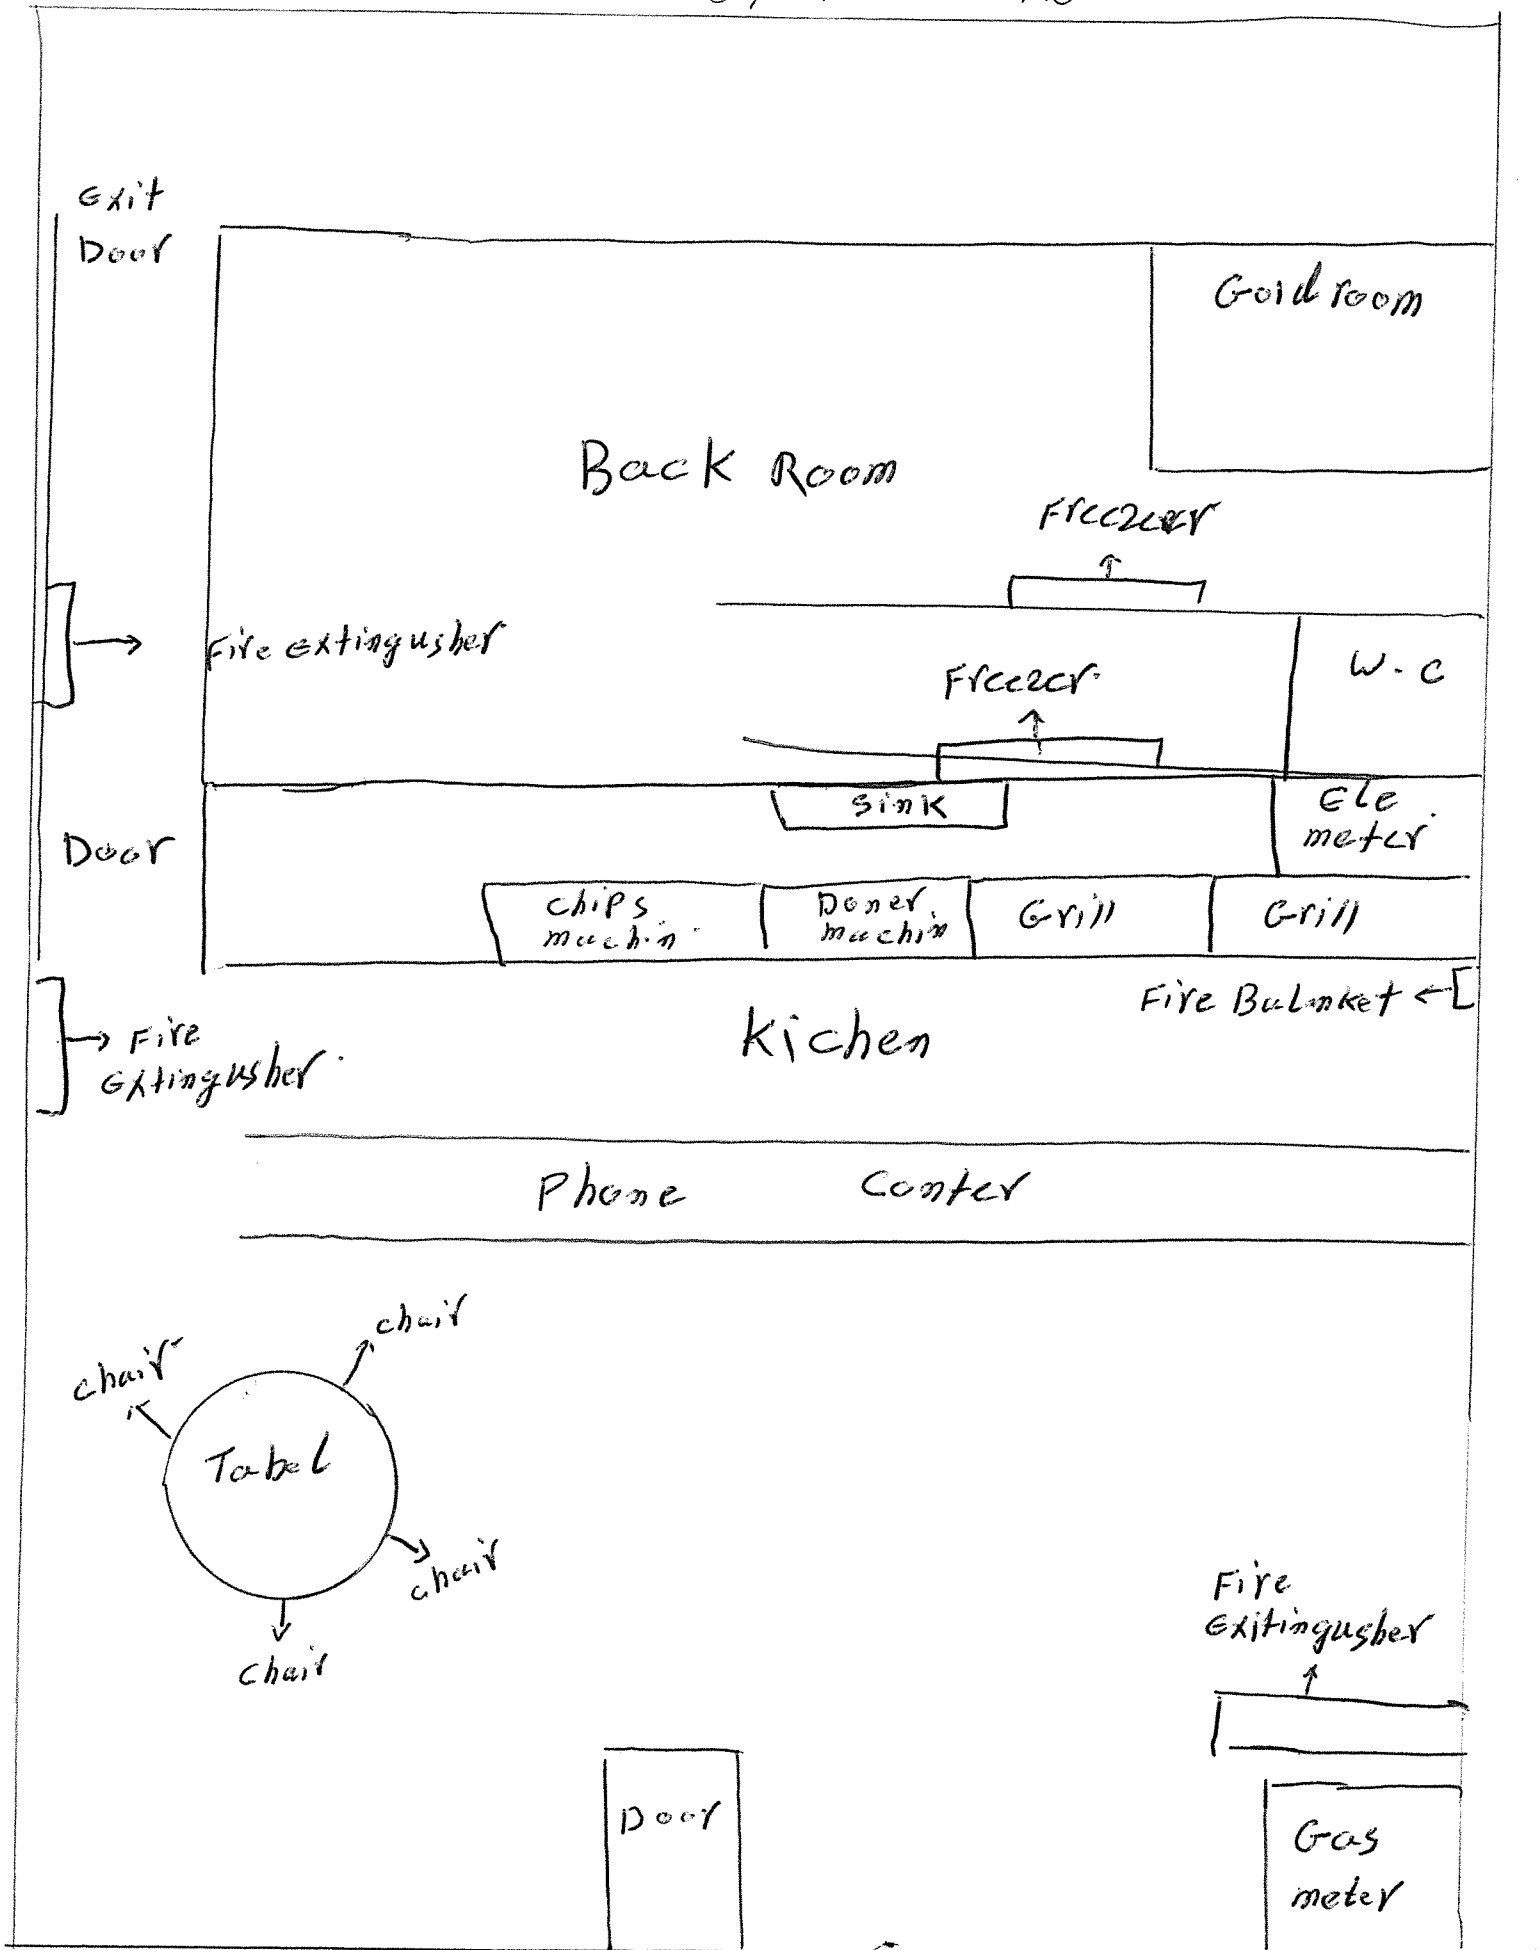 Exit
Door
Goldroom
Back Room
Freezer
Fire Extingusher
W.C
Freezer
Sink
Ele
meter
Door
Chips
machin
Doner
machin
Grill
Grill
Fire Bulnket
Kichen
Fire
Extingusher
Phone Conter
chair
chair
Tabel
chair
chair
Fire
Exitingusher
Door
Gas
meter